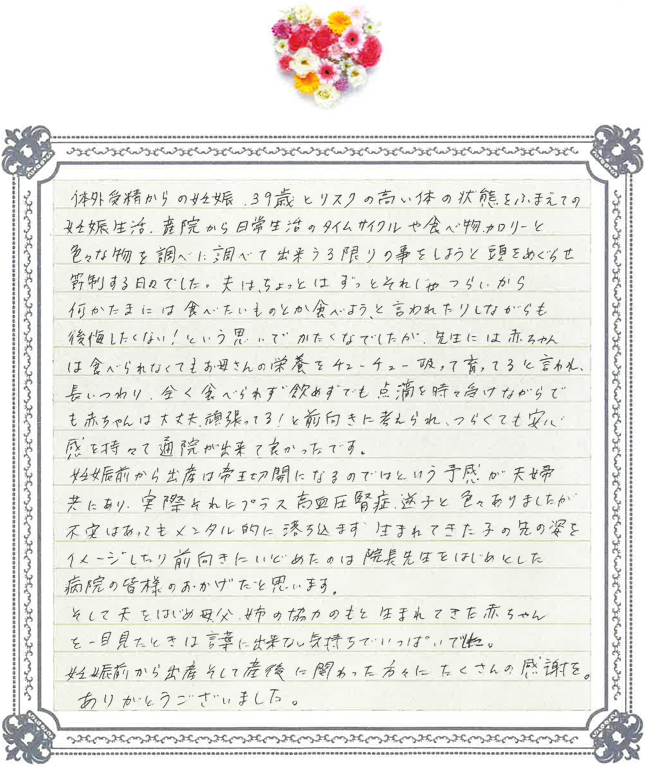 体外受精からの妊娠、39歳とリスクの高い体の状態をふまえての
妊娠生活、産院から日常生活のタイムサイクルや食べ物、カロリーと
色々な物を調べに調べて出来うる限りの事をしようと頭をめぐらせ
節制する日々でした。夫は、ちょっとは ずっとそれじゃつらいから
何かたまには食べたいものとか食べよう、と言われたりしながらも
後悔したくない！という思いでかたくなでしたが、先生には赤ちゃん
は食べられなくてもお母さんの栄養をチューチュー吸って育ってると言われ、
長いつわり、全く食べられず飲めずでも点滴を時々受けながらで
も赤ちゃんは大丈夫、頑張ってる！と前向きに考えられ、つらくても安心
感を持って通院が出来て良かったです。
妊娠前から出産は帝王切開になるのではという予感が夫婦
共にあり、実際それにプラス高血圧腎症、逆子と色々ありましたが
不安はあってもメンタル的に落ち込まず 生まれてきた子の先の姿を
イメージしたり前向きにいどめたのは院長先生をはじめとした
病院の皆様のおかげだと思います。
そして夫をはじめ母父、姉の協力のもと生まれてきた赤ちゃん
を一目見たときは言葉に出来ない気持ちでいっぱいでした。
妊娠前から出産そして産後に関わった方々にたくさんの感謝を。
ありがとうございました。